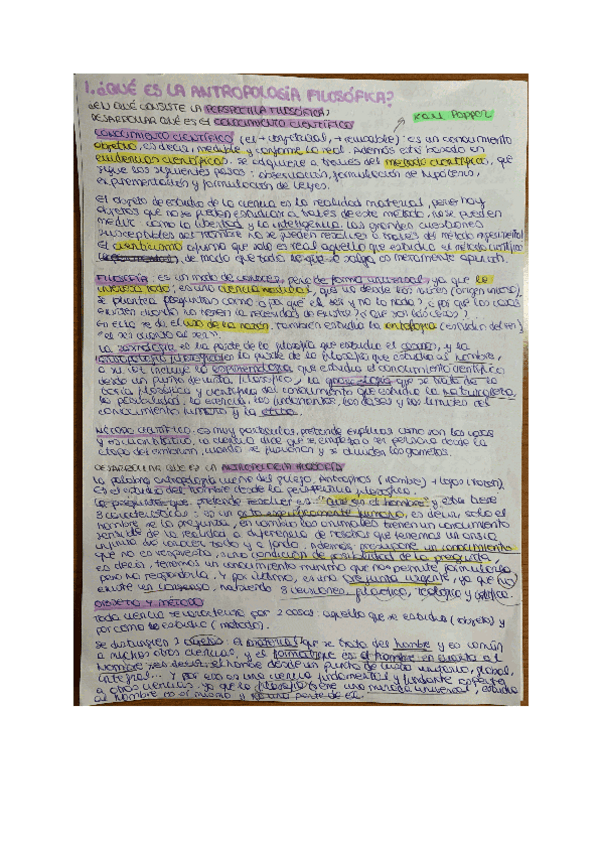 1. ¿QUÉ ES LA ANTROPOLOGÍA FILOSÓFICA?
¿EN QUÉ CONSISTE LA PERSPECTIVA FILOSÓFICA?
Karl Popper
DESARROLLAR QUÉ ES EL CONOCIMIENTO CIENTÍFICO
CONOCIMIENTO CIENTÍFICO es un conocimiento
objetivo, es decir, medible y conforme lo real. Además está basado en
evidencias científicas. Se adquiere a través del método científico, que
sigue los siguientes pasos: observación, formulación de hipótesis,
experimentación y formulación de leyes.
El objeto de estudio de la ciencia es la realidad material, pero hay
objetos que no se pueden estudiar a través de este método, no se pueden
medir como la libertad y la inteligencia. Las grandes cuestiones
del hombre no se pueden resolver a través del método experimental
El cientificismo afirma que solo es real aquello que estudia el método científico
de modo que todo lo que se salga es meramente opinión.
FILOSOFÍA: es un modo de conocer, pero de forma universal, ya que le
interesa todo; es una ciencia
Se plantea preguntas como ¿por qué el ser y no la nada? ¿por qué las cosas
existen cuando no tienen la necesidad de existir?
En ella se da el uso de la razón, también estudia la ontología
"el ser en cuanto al ser".
La es la parte de la filosofía que estudia el y la
antropología la parte de la filosofía que estudia al hombre,
a su vez incluye la epistemología que estudia el conocimiento científico
desde un punto de vista filosófico, la gnoseología que se trata de la
teoría filosófica y científica del conocimiento que estudia la naturaleza,
la posibilidad, los fundamentos, las bases y los límites del
conocimiento humano y la ética.
MÉTODO CIENTÍFICO: es muy particular, pretende explicar cómo son las cosas
y es cuantitativo, la ciencia dice que se empieza a ser persona desde la
etapa del embrión, cuando se y se dividen los gametos.
DESARROLLAR QUÉ ES LA ANTROPOLOGÍA FILOSÓFICA
La palabra antropología viene del griego, Antropos (hombre) + logos (razón).
Es el estudio del hombre desde la perspectiva filosófica.
La pregunta que pretende resolver es: "qué es el hombre" y esta tiene
3 características: es un acto específicamente humano, es decir solo el
hombre se la pregunta, en cambio los animales tienen un conocimiento
sensible de la realidad a diferencia de nosotros que tenemos un ansia
infinita de conocer todo y a fondo. Además presupone un conocimiento
que no es respuesta, sino condición de posibilidad de la pregunta
es decir, tenemos un conocimiento mínimo que nos permite formularla
pero no responderla. Y por último, es una pregunta urgente, ya que no
existe un consenso, habiendo 3 versiones: filosófica, teológica y científica.
OBJETO Y MÉTODO
Toda ciencia se caracteriza por 2 cosas: aquello que se estudia (objeto) y
por cómo se estudia (método).
Se distinguen 2 objetos: el material que se trata del hombre y es común
a muchas otras ciencias, y el formal que es el hombre en cuanto al
hombre, es decir, el hombre desde un punto de vista unitario, global,
integral... Y por eso es una ciencia fundamental y fundante respecto
a otras ciencias, ya que la filosofía tiene una mirada universal, estudia
al hombre en sí mismo y no una parte de él.